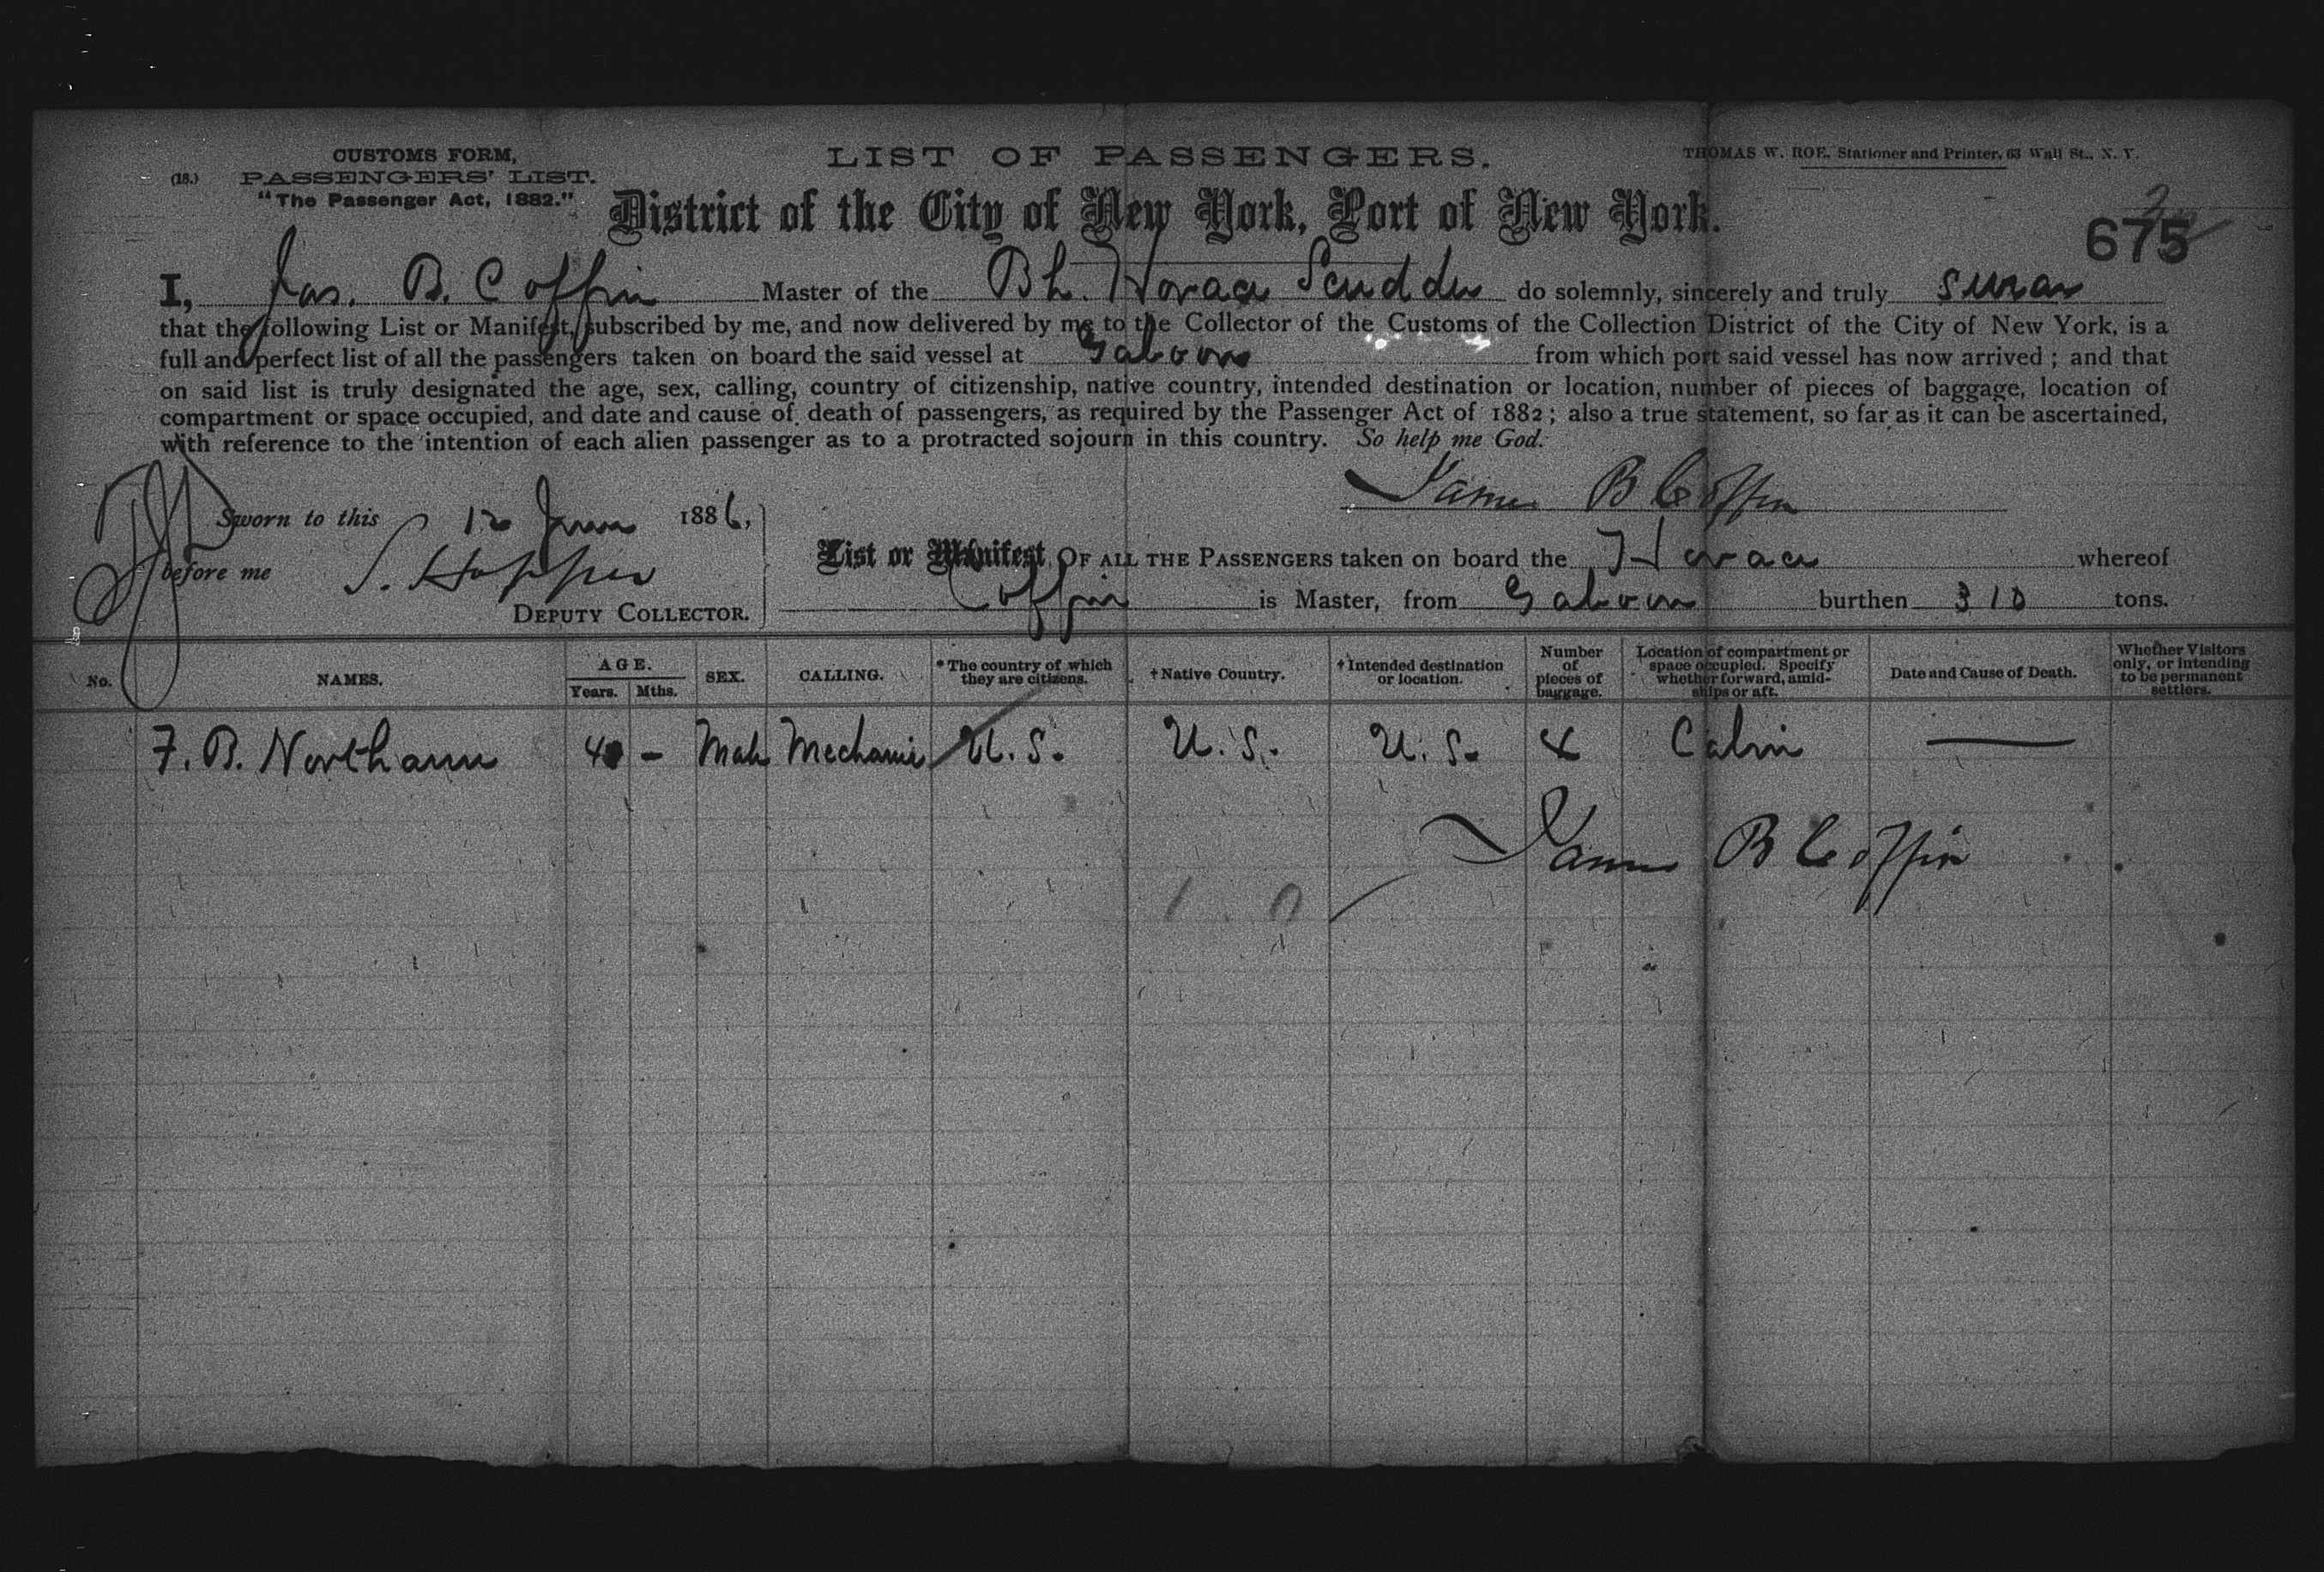 CUSTOMS FORM,
(18.) PASSENGERS' LIST.
"The Passenger Act, 1882."
LIST OF PASSENGERS.
THOMAS W. ROE, Stationer and Printer, 63 Wall St., N. Y.
District of the City of New York, Port of New York.
675
I, Jas. B. Coffin Master of the Bk. Horace Scudder do solemnly, sincerely and truly swear
that the following List or Manifest, subscribed by me, and now delivered by me to the Collector of the Customs of the Collection District of the City of New York, is a
full and perfect list of all the passengers taken on board the said vessel at Gaboon from which port said vessel has now arrived; and that
on said list is truly designated the age, sex, calling, country of citizenship, native country, intended destination or location, number of pieces of baggage, location of
compartment or space occupied, and date and cause of death of passengers, as required by the Passenger Act of 1882; also a true statement, so far as it can be ascertained,
with reference to the intention of each alien passenger as to a protracted sojourn in this country. So help me God.
James B Coffin
Sworn to this 12 June 1886,
before me S. Hopper
DEPUTY COLLECTOR.
List or Manifest OF ALL THE PASSENGERS taken on board the Horace whereof
Coffin is Master, from Gaboon burthen 310 tons.
No. NAMES. AGE. Years. Mths. SEX. CALLING. *The country of which they are citizens. †Native Country. †Intended destination or location. Number of pieces of baggage. Location of compartment or space occupied. Specify whether forward, amidships or aft. Date and Cause of Death. Whether Visitors only, or intending to be permanent settlers.
F. B. Northam 40 - Male Mechanic U.S. U.S. U.S. 4 Cabin —
James B Coffin
1 0